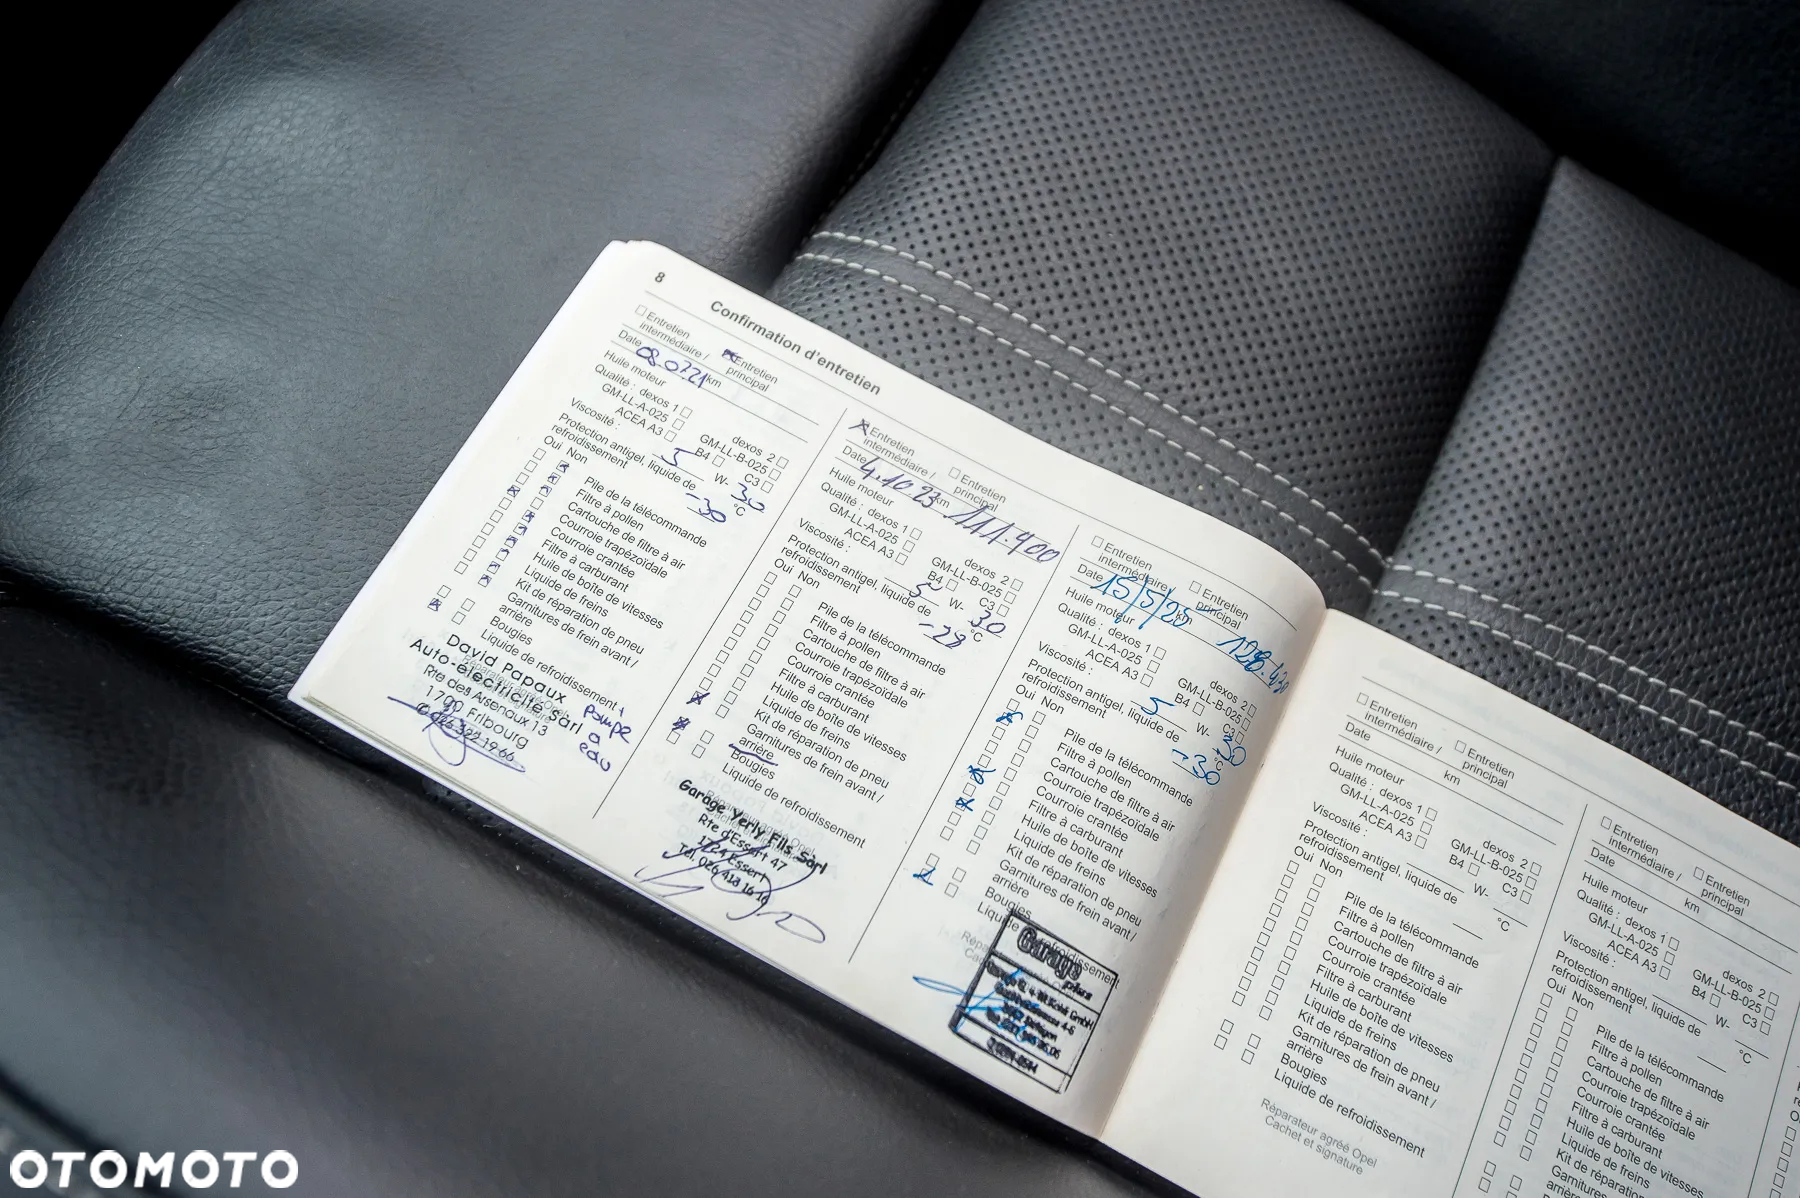 8
Confirmation d'entretien
Entretien
intermédiaire /
Entretien
principal
Date 08.07.21 km
Huile moteur
Qualité : dexos 1
dexos 2
GM-LL-A-025
GM-LL-B-025
ACEA A3
B4
C3
Viscosité : 5 W- 30
Protection antigel, liquide de
refroidissement -30 °C
Oui Non
Pile de la télécommande
Filtre à pollen
Cartouche de filtre à air
Courroie trapézoïdale
Courroie crantée
Filtre à carburant
Huile de boîte de vitesses
Liquide de freins
Kit de réparation de pneu
Garnitures de frein avant /
arrière
Bougies
Liquide de refroidissement
pompe
a
eau
David Papaux
Auto-électricité Sàrl
Rte des Arsenaux 13
1700 Fribourg
026 322 19 66
Entretien
intermédiaire /
Entretien
principal
Date 4.10 23 km 111.400
Huile moteur
Qualité : dexos 1
dexos 2
GM-LL-A-025
GM-LL-B-025
ACEA A3
B4
C3
Viscosité : 5 W- 30
Protection antigel, liquide de
refroidissement -28 °C
Oui Non
Pile de la télécommande
Filtre à pollen
Cartouche de filtre à air
Courroie trapézoïdale
Courroie crantée
Filtre à carburant
Huile de boîte de vitesses
Liquide de freins
Kit de réparation de pneu
Garnitures de frein avant /
arrière
Bougies
Liquide de refroidissement
Garage Yerly Fils Sàrl
Rte d'Essert 47
1724 Essert
Tél. 026 413 16 16
Entretien
intermédiaire /
Entretien
principal
Date 15/5/25 km 128.430
Huile moteur
Qualité : dexos 1
dexos 2
GM-LL-A-025
GM-LL-B-025
ACEA A3
B4
C3
Viscosité : 5 W- 30
Protection antigel, liquide de
refroidissement -30 °C
Oui Non
Pile de la télécommande
Filtre à pollen
Cartouche de filtre à air
Courroie trapézoïdale
Courroie crantée
Filtre à carburant
Huile de boîte de vitesses
Liquide de freins
Kit de réparation de pneu
Garnitures de frein avant /
arrière
Bougies
Liquide de refroidissement
Garage
plus
Entretien
intermédiaire /
Entretien
principal
Date km
Huile moteur
Qualité : dexos 1
dexos 2
GM-LL-A-025
GM-LL-B-025
ACEA A3
B4
C3
Viscosité : W-
Protection antigel, liquide de
refroidissement °C
Oui Non
Pile de la télécommande
Filtre à pollen
Cartouche de filtre à air
Courroie trapézoïdale
Courroie crantée
Filtre à carburant
Huile de boîte de vitesses
Liquide de freins
Kit de réparation de pneu
Garnitures de frein avant /
arrière
Bougies
Liquide de refroidissement
Réparateur agréé Opel
Cachet et signature
Entretien
intermédiaire /
Entretien
principal
Date km
Huile moteur
Qualité : dexos 1
dexos 2
GM-LL-A-025
GM-LL-B-025
ACEA A3
B4
C3
Viscosité : W-
Protection antigel, liquide de
refroidissement °C
Oui Non
Pile de la télécommande
Filtre à pollen
Cartouche de filtre à air
Courroie trapézoïdale
Courroie crantée
Filtre à carburant
Huile de boîte de vitesses
Liquide de freins
Kit de réparation de pneu
Garnitures de frein avant /
OTOMOTO